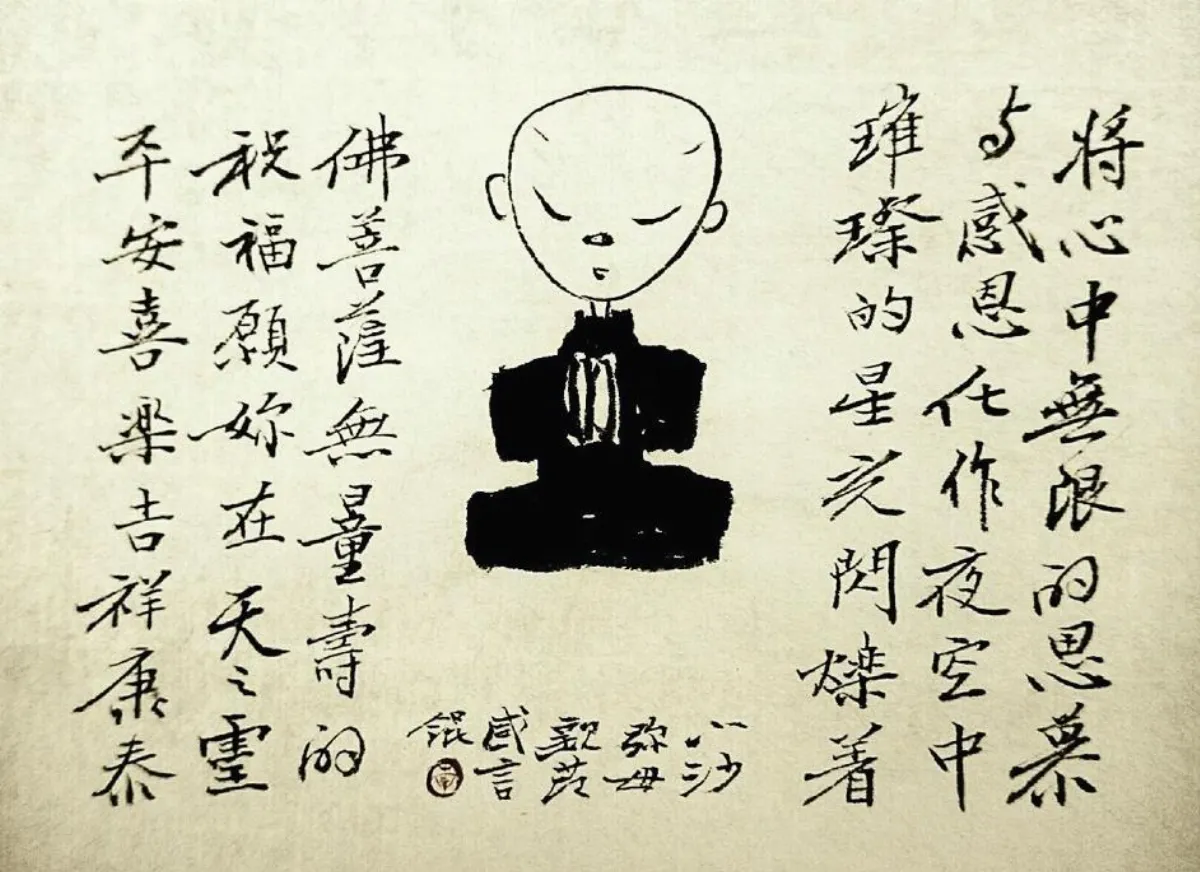 将心中無限的思慕
与感恩化作夜空中
璀璨的星光閃爍着
佛菩薩無量壽的
祝福願妳在天之霊
平安喜楽吉祥康泰
小沙
弥母
親节
感言
錕